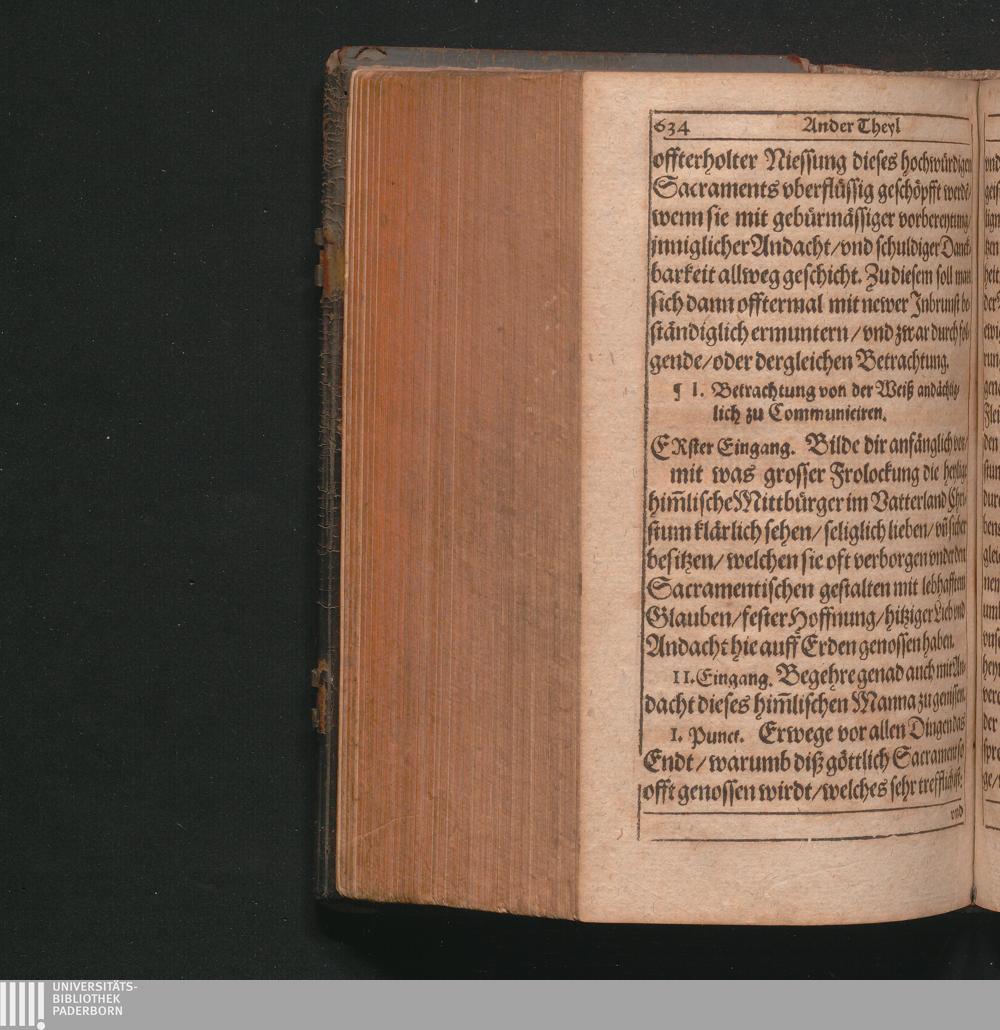 634 Ander Theyl
offterholter Niessung dieses hochwürdigen
Sacraments vberflüssig geschöpfft werdē/
wenn sie mit gebürmässiger vorbereytung/
jnniglicher Andacht/vnd schuldiger Danck
barkeit allweg geschicht. Zu diesem soll man
sich dann offtermal mit newer Jnbrunst be
ständiglich ermuntern/vnd zwar durch fol
gende/oder dergleichen Betrachtung.
¶ I. Betrachtung von der Weiß andächtig
lich zu Communieiren.
ERster Eingang. Bilde dir anfänglich vor/
mit was grosser Frolockung die heylige
him̄lische Mittbürger im Vatterland Chri
stum klärlich sehen/seliglich lieben/vn̄ sicher
besitzen/welchen sie oft verborgen vnder den
Sacramentischen gestalten mit lebhafftem
Glauben/fester Hoffnung/hitziger Lieb vnd
Andacht hie auff Erden genossen haben.
II. Eingang. Begehre genad auch mit An
dacht dieses him̄lischen Manna zu geniessen.
I. Punct. Erwege vor allen Dingen das
Endt/warumb diß göttlich Sacrament so
offt genossen wirdt/welches sehr trefflich ist:
vnd
UNIVERSITÄTS-
BIBLIOTHEK
PADERBORN